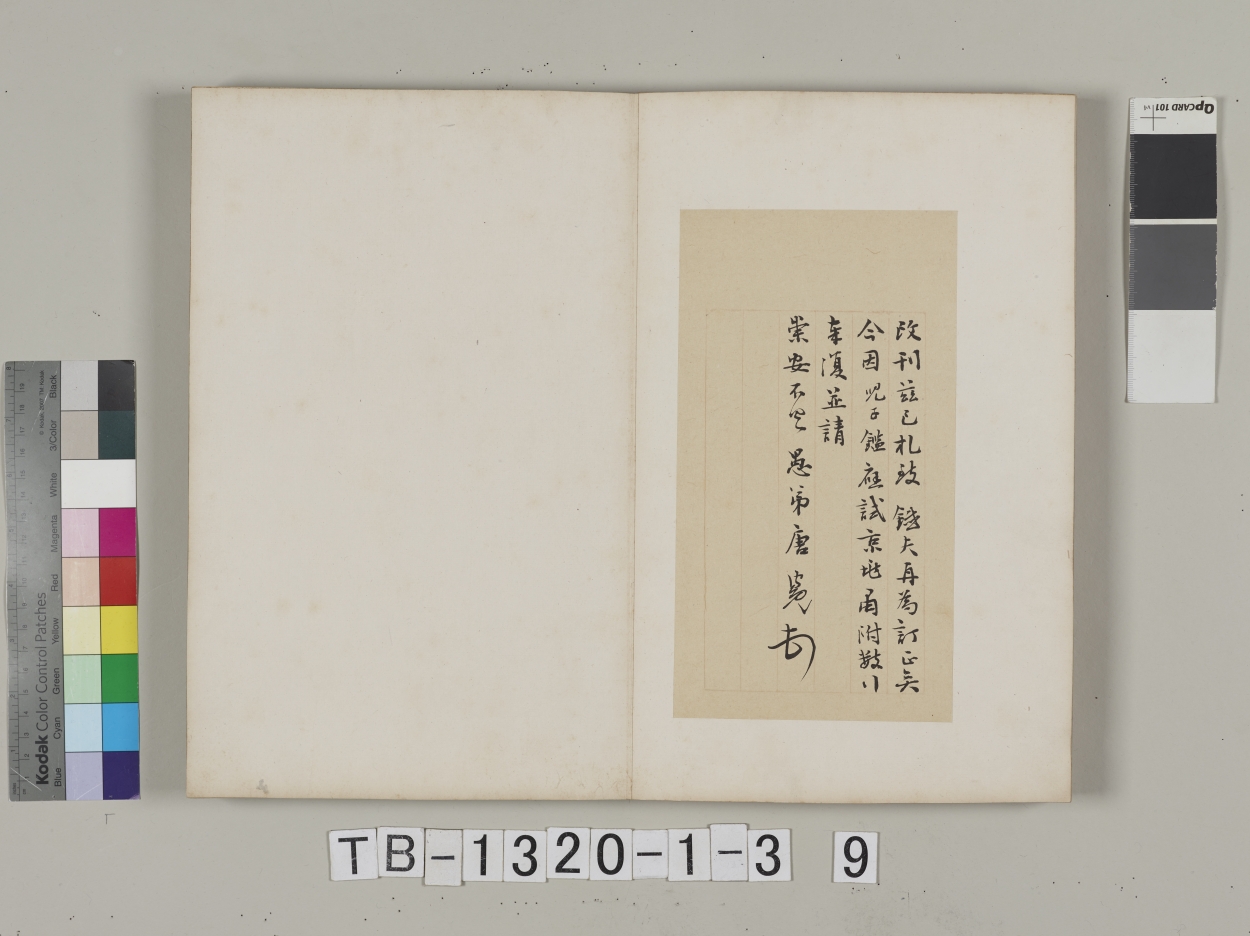 改刊茲已札致 夫再為訂正矣
今因兒子鑑應試京兆耑附數行
奉復並請
崇安不具 愚弟唐
QPCARD 101
Kodak Color Control Patches
Black
3/Color
White
Magenta
Red
Yellow
Green
Cyan
Blue
TB-1320-1-3 9